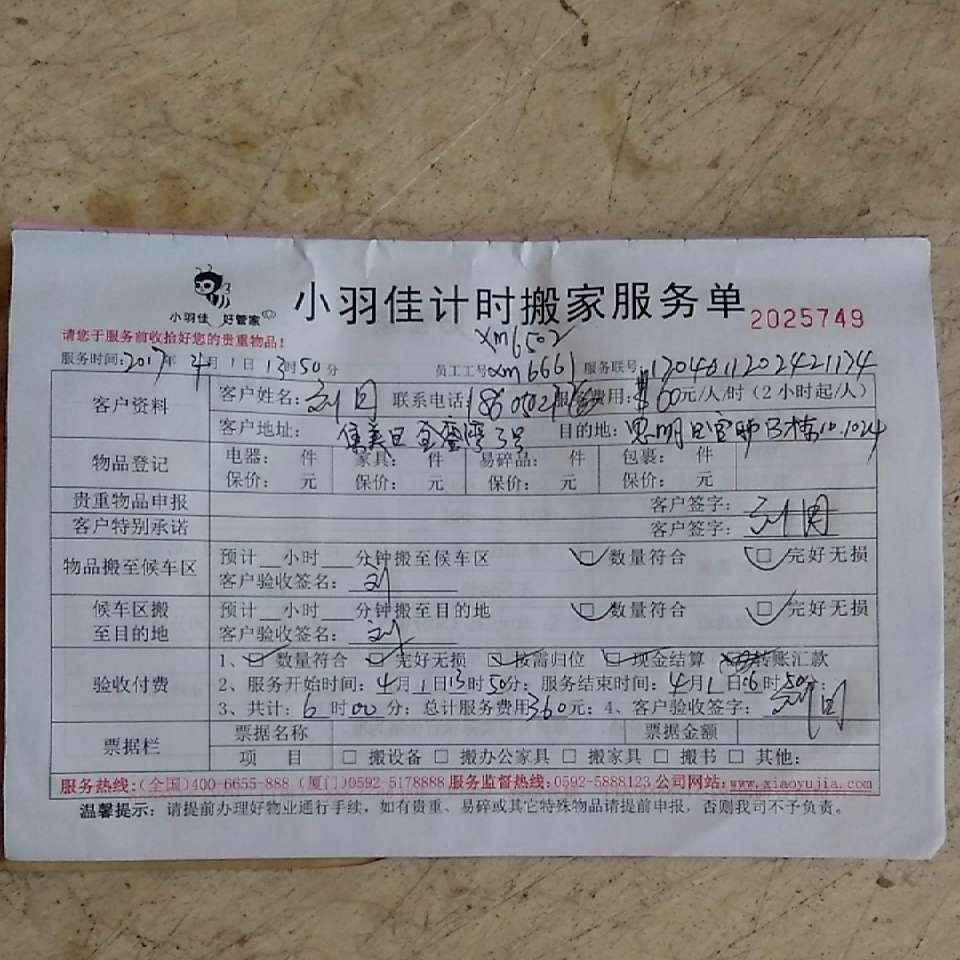 小羽佳 好管家
小羽佳计时搬家服务单 2025749
请您于服务前收拾好您的贵重物品！
xm6502
服务时间：2017年4月1日13时50分 员工工号xm6661 服务联号：
客户资料 客户姓名： 联系电话： 服务费用：60元/人/时（2小时起/人）
客户地址：集美区 3号 目的地：思明区 10.1024
物品登记 电器： 件 家具： 件 易碎品： 件 包裹： 件
保价： 元 保价： 元 保价： 元 保价： 元
贵重物品申报 客户签字：
客户特别承诺 客户签字：
物品搬至候车区 预计__小时__分钟搬至候车区 ☑数量符合 ☑完好无损
客户验收签名：刘
候车区搬至目的地 预计__小时__分钟搬至目的地 ☑数量符合 ☑完好无损
客户验收签名：刘
验收付费 1、☑数量符合 ☑完好无损 ☑按需归位 ☑现金结算 转账汇款
2、服务开始时间：4月1日13时50分；服务结束时间：4月1日16时50分；
3、共计：6时00分；总计服务费用360元；4、客户验收签字：
票据栏 票据名称 票据金额
项 目 □搬设备 □搬办公家具 □搬家具 □搬书 □其他：
服务热线：(全国)400-6655-888 (厦门)0592-5178888 服务监督热线：0592-5888123 公司网站：www.xiaoyujia.com
温馨提示：请提前办理好物业通行手续，如有贵重、易碎或其它特殊物品请提前申报，否则我司不予负责。